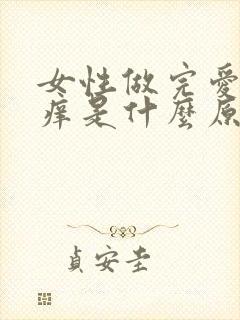 女性做完爱
痒是什麼原
貞安圭